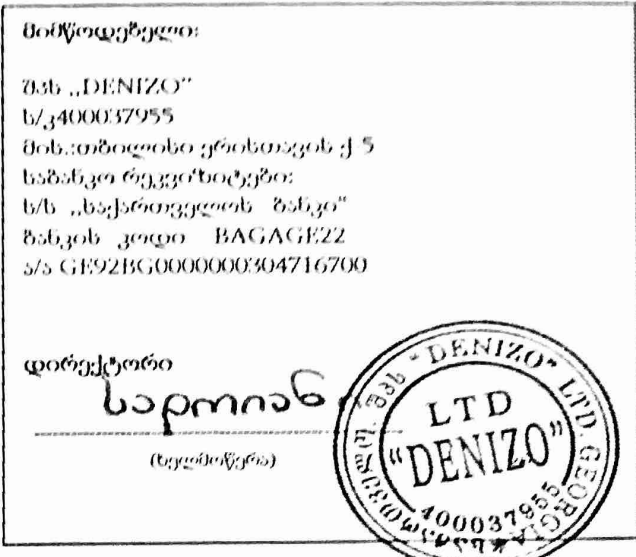 მიმწოდებელი:
შპს ,,DENIZO"
ს/კ400037955
მის.:თბილისი ერისთავის ქ 5
საბანკო რეკვიზიტები:
ს/ს ,,საქართველოს ბანკი"
ბანკის კოდი BAGAGE22
ა/ა GE92BG0000000304716700
დირექტორი
სადოიან
(ხელმოწერა)
შპს "DENIZO" LTD. GEORGIA
LTD
"DENIZO"
400037955